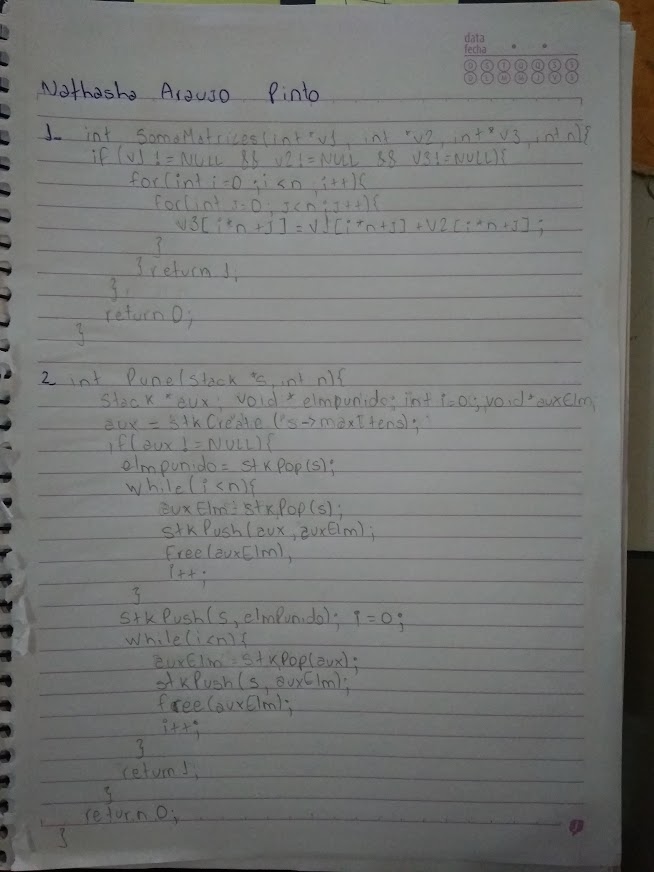 data
fecha
D S T Q Q S S
D L M M J V S
Nathasha Araujo Pinto
1- int SomaMatrizes(int *v1, int *v2, int *v3, int n){
if (v1 != NULL && v2 != NULL && v3 != NULL){
for(int i=0; i<n, i++){
for(int j=0; j<n; j++){
v3[i*n+j] = v1[i*n+j] + v2[i*n+j];
}
} return 1;
}
return 0;
}
2 int Pune(Stack *s, int n){
Stack *aux; void * elmpunido; int i=0; void *auxElm;
aux = stkCreate(s->maxItens);
if(aux != NULL){
elmpunido = stkPop(s);
while(i<n){
auxElm = stkPop(s);
stkPush(aux, auxElm);
free(auxElm);
i++;
}
stkPush(s, elmPunido); i=0;
while(i<n){
auxElm = stkPop(aux);
stkPush(s, auxElm);
free(auxElm);
i++;
}
return 1;
}
return 0;
}